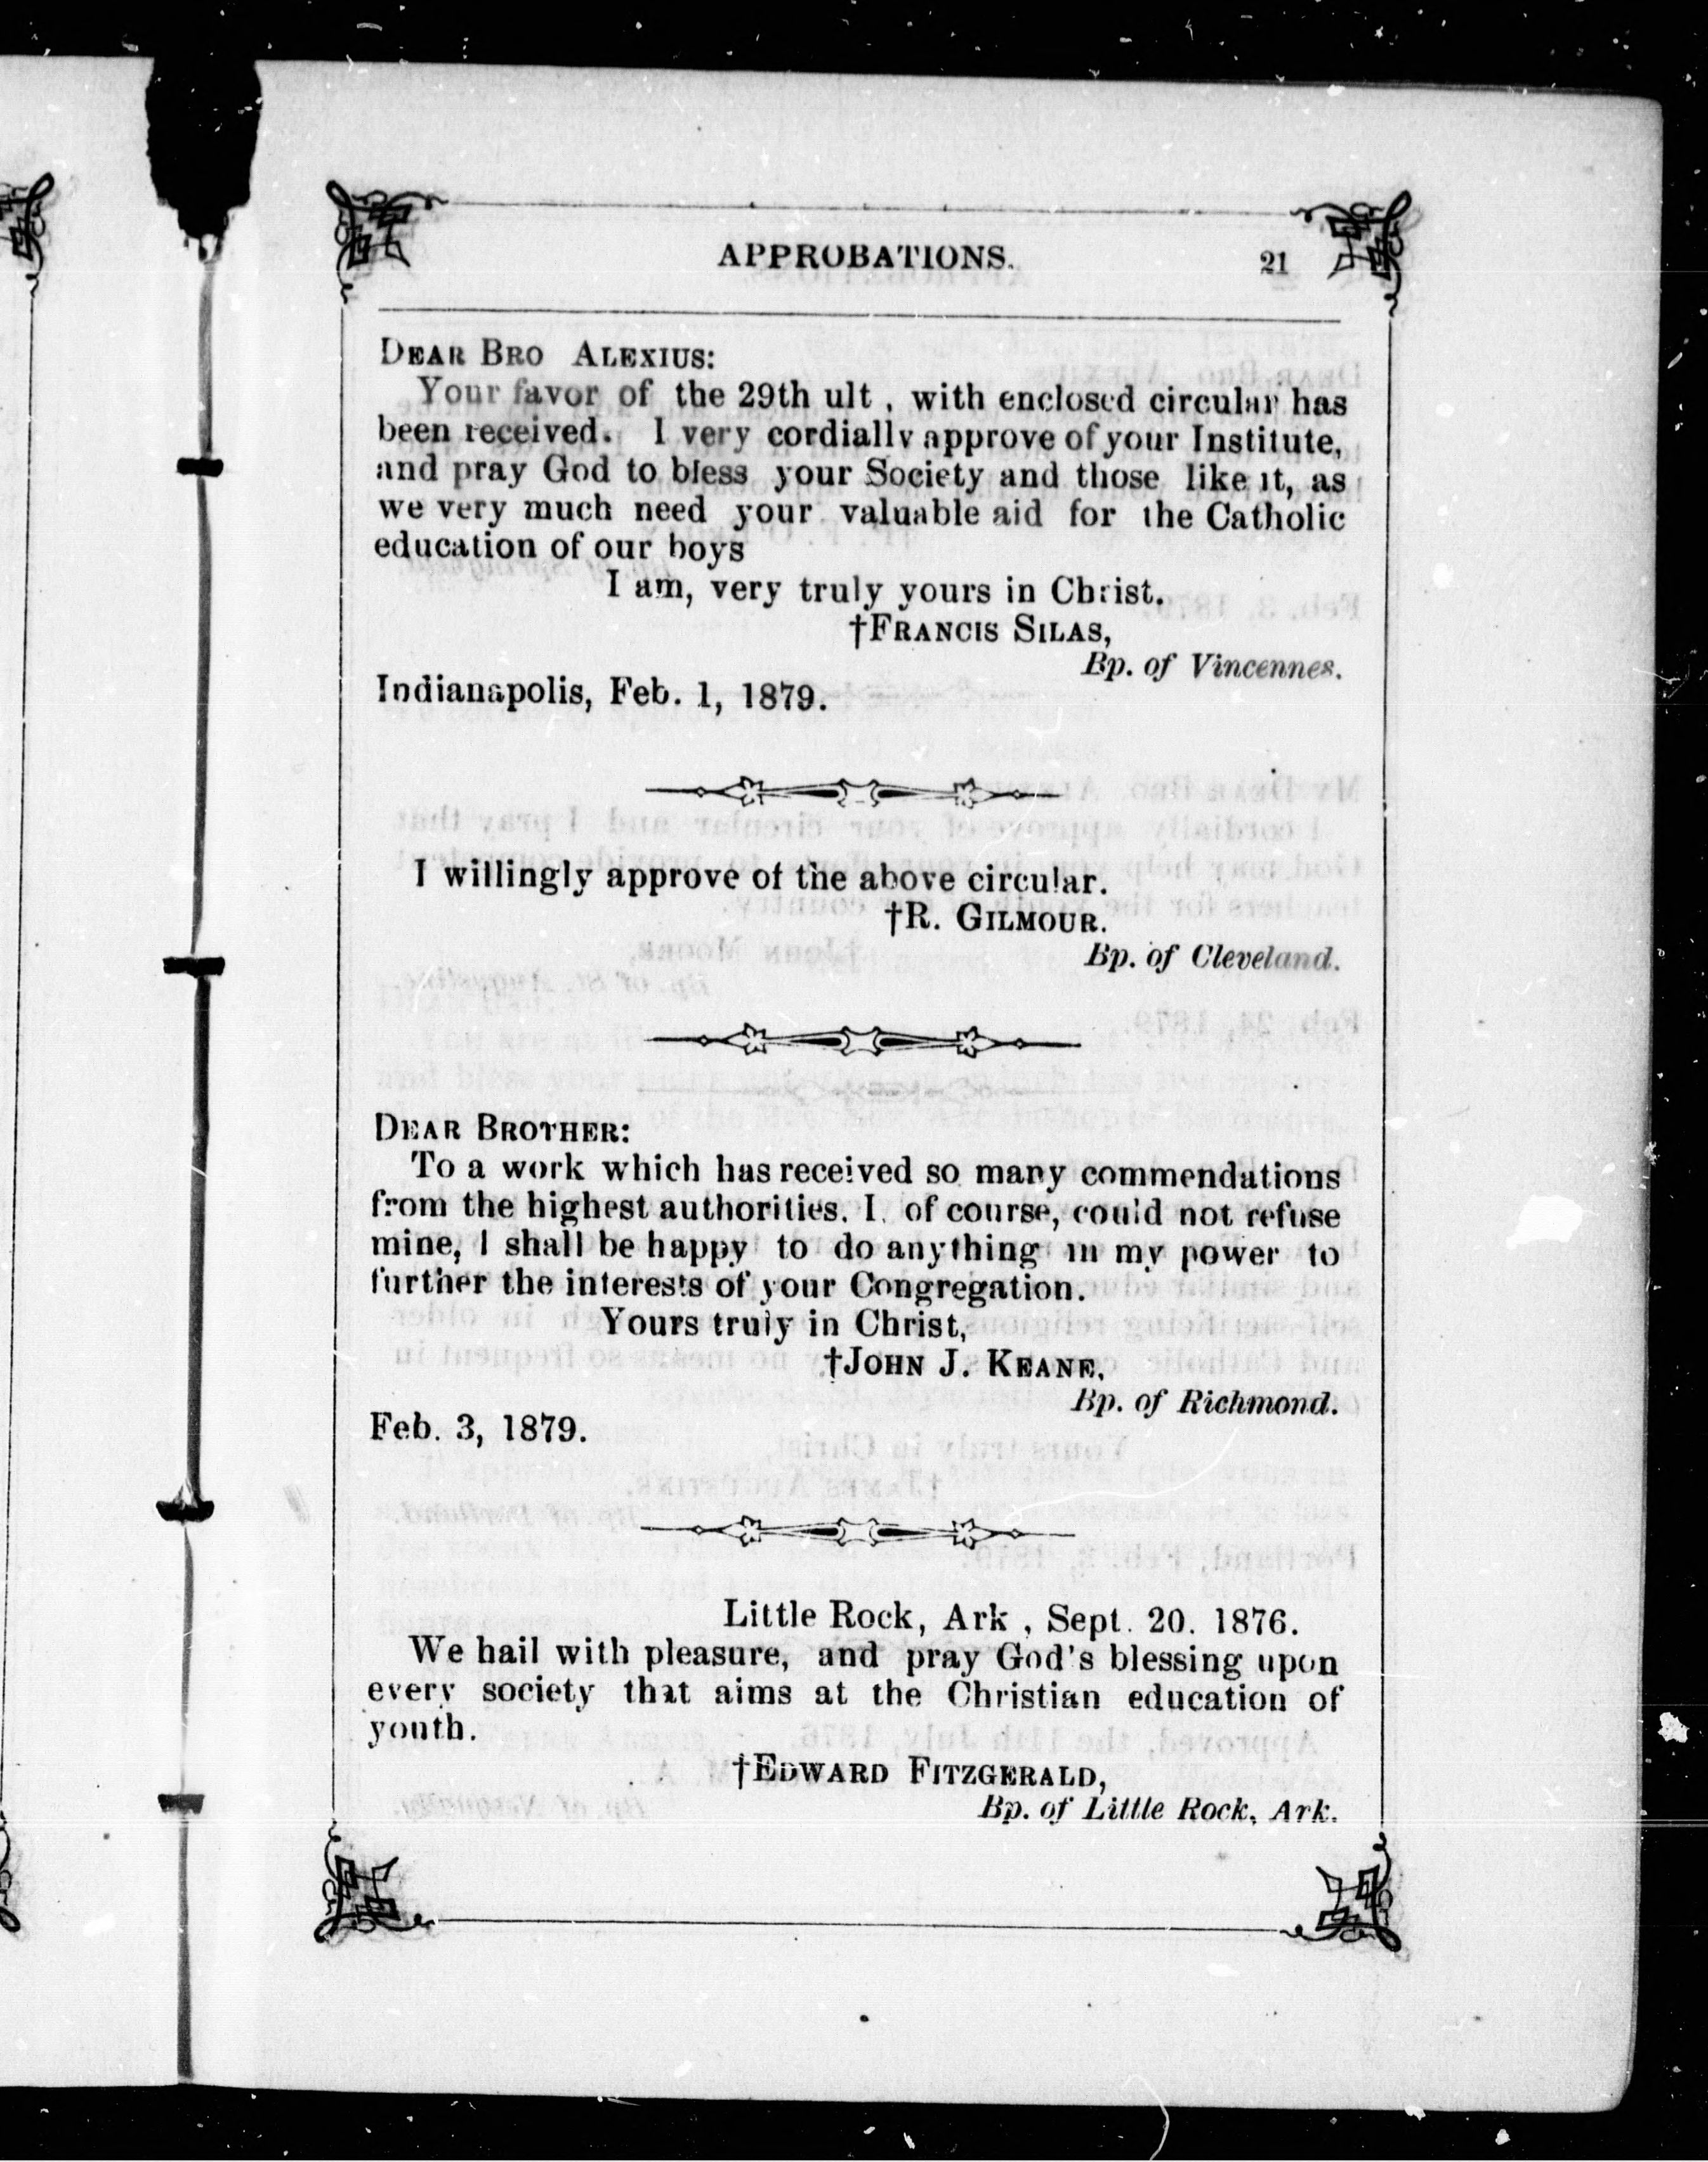 APPROBATIONS. 21
DEAR BRO ALEXIUS:
Your favor of the 29th ult , with enclosed circular has
been received. I very cordially approve of your Institute,
and pray God to bless your Society and those like it, as
we very much need your valuable aid for the Catholic
education of our boys
I am, very truly yours in Christ.
†FRANCIS SILAS,
Bp. of Vincennes.
Indianapolis, Feb. 1, 1879.
I willingly approve of the above circular.
†R. GILMOUR.
Bp. of Cleveland.
DEAR BROTHER:
To a work which has received so many commendations
from the highest authorities. I. of course, could not refuse
mine, I shall be happy to do anything in my power to
further the interests of your Congregation.
Yours truly in Christ,
†JOHN J. KEANE,
Bp. of Richmond.
Feb. 3, 1879.
Little Rock, Ark , Sept. 20. 1876.
We hail with pleasure, and pray God's blessing upon
every society that aims at the Christian education of
youth.
†EDWARD FITZGERALD,
Bp. of Little Rock, Ark.